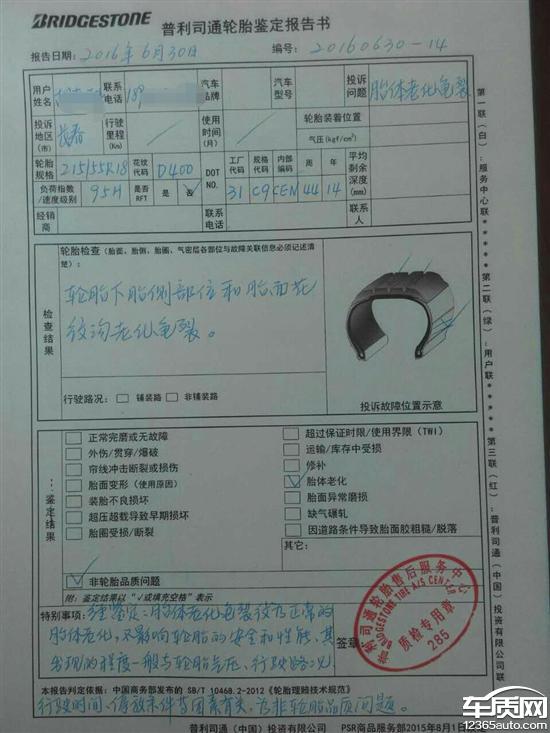 BRIDGESTONE
普利司通轮胎鉴定报告书
报告日期: 2016年6月30日 编号: 20160630-14
用户姓名 联系电话 189 汽车品牌 汽车型号 投诉问题 胎体老化龟裂
投诉地区(市) 长春 行驶里程(Km) / 使用时间(月) / 轮胎装着位置
气压(kgf/cm²)
轮胎规格 215/55R18 花纹代码 D400 DOT NO. 工厂代码 31 规格代码 C9 内部编码 CEN 周 44 年 14 平均剩余深度(mm)
负荷指数/速度级别 95H 是否RFT 是 否
经销商 联系电话 联系人
检查结果
轮胎检查(胎面、胎侧、胎圈、气密层各部位与故障关联信息必须记述清楚):
轮胎下胎侧部位和胎面花
纹沟老化龟裂。
行驶路况: □ 铺装路 □ 非铺装路
投诉故障位置示意
鉴定结果
正常完磨或无故障
外伤/贯穿/爆破
帘线冲击断裂或损伤
胎面变形(使用原因)
装胎不良损坏
超压超载导致早期损坏
胎圈受损/断裂
超过保证时限/使用界限(TWI)
运输/库存中受损
修补
✓ 胎体老化
胎面异常磨损
缺气碾轧
因道路条件导致胎面胶粗糙/脱落
其它:
✓ 非轮胎品质问题
附: 鉴定结果以"√或填充空格"表示
特别事项: 经鉴定:胎体老化龟裂系为正常的
胎体老化,不影响轮胎的安全和性能,其
出现的程度一般与轮胎气压、行驶路况
签章:
普利司通轮胎售后服务中心
BRIDGESTONE TIRE A/S CENTER
质检专用章
285
本报告判定依据: 中国商务部发布的 SB/T 10468.2-2012《轮胎理赔技术规范》
行驶时间、停放条件等因素有关,为非轮胎品质问题。
普利司通(中国)投资有限公司 PSR商品服务部2015年8月1日
第一联(白):服务中心联 ***** 第二联(绿):用户联 ***** 第三联(红):普利司通(中国)投资有限公司联
车质网
12365auto.com